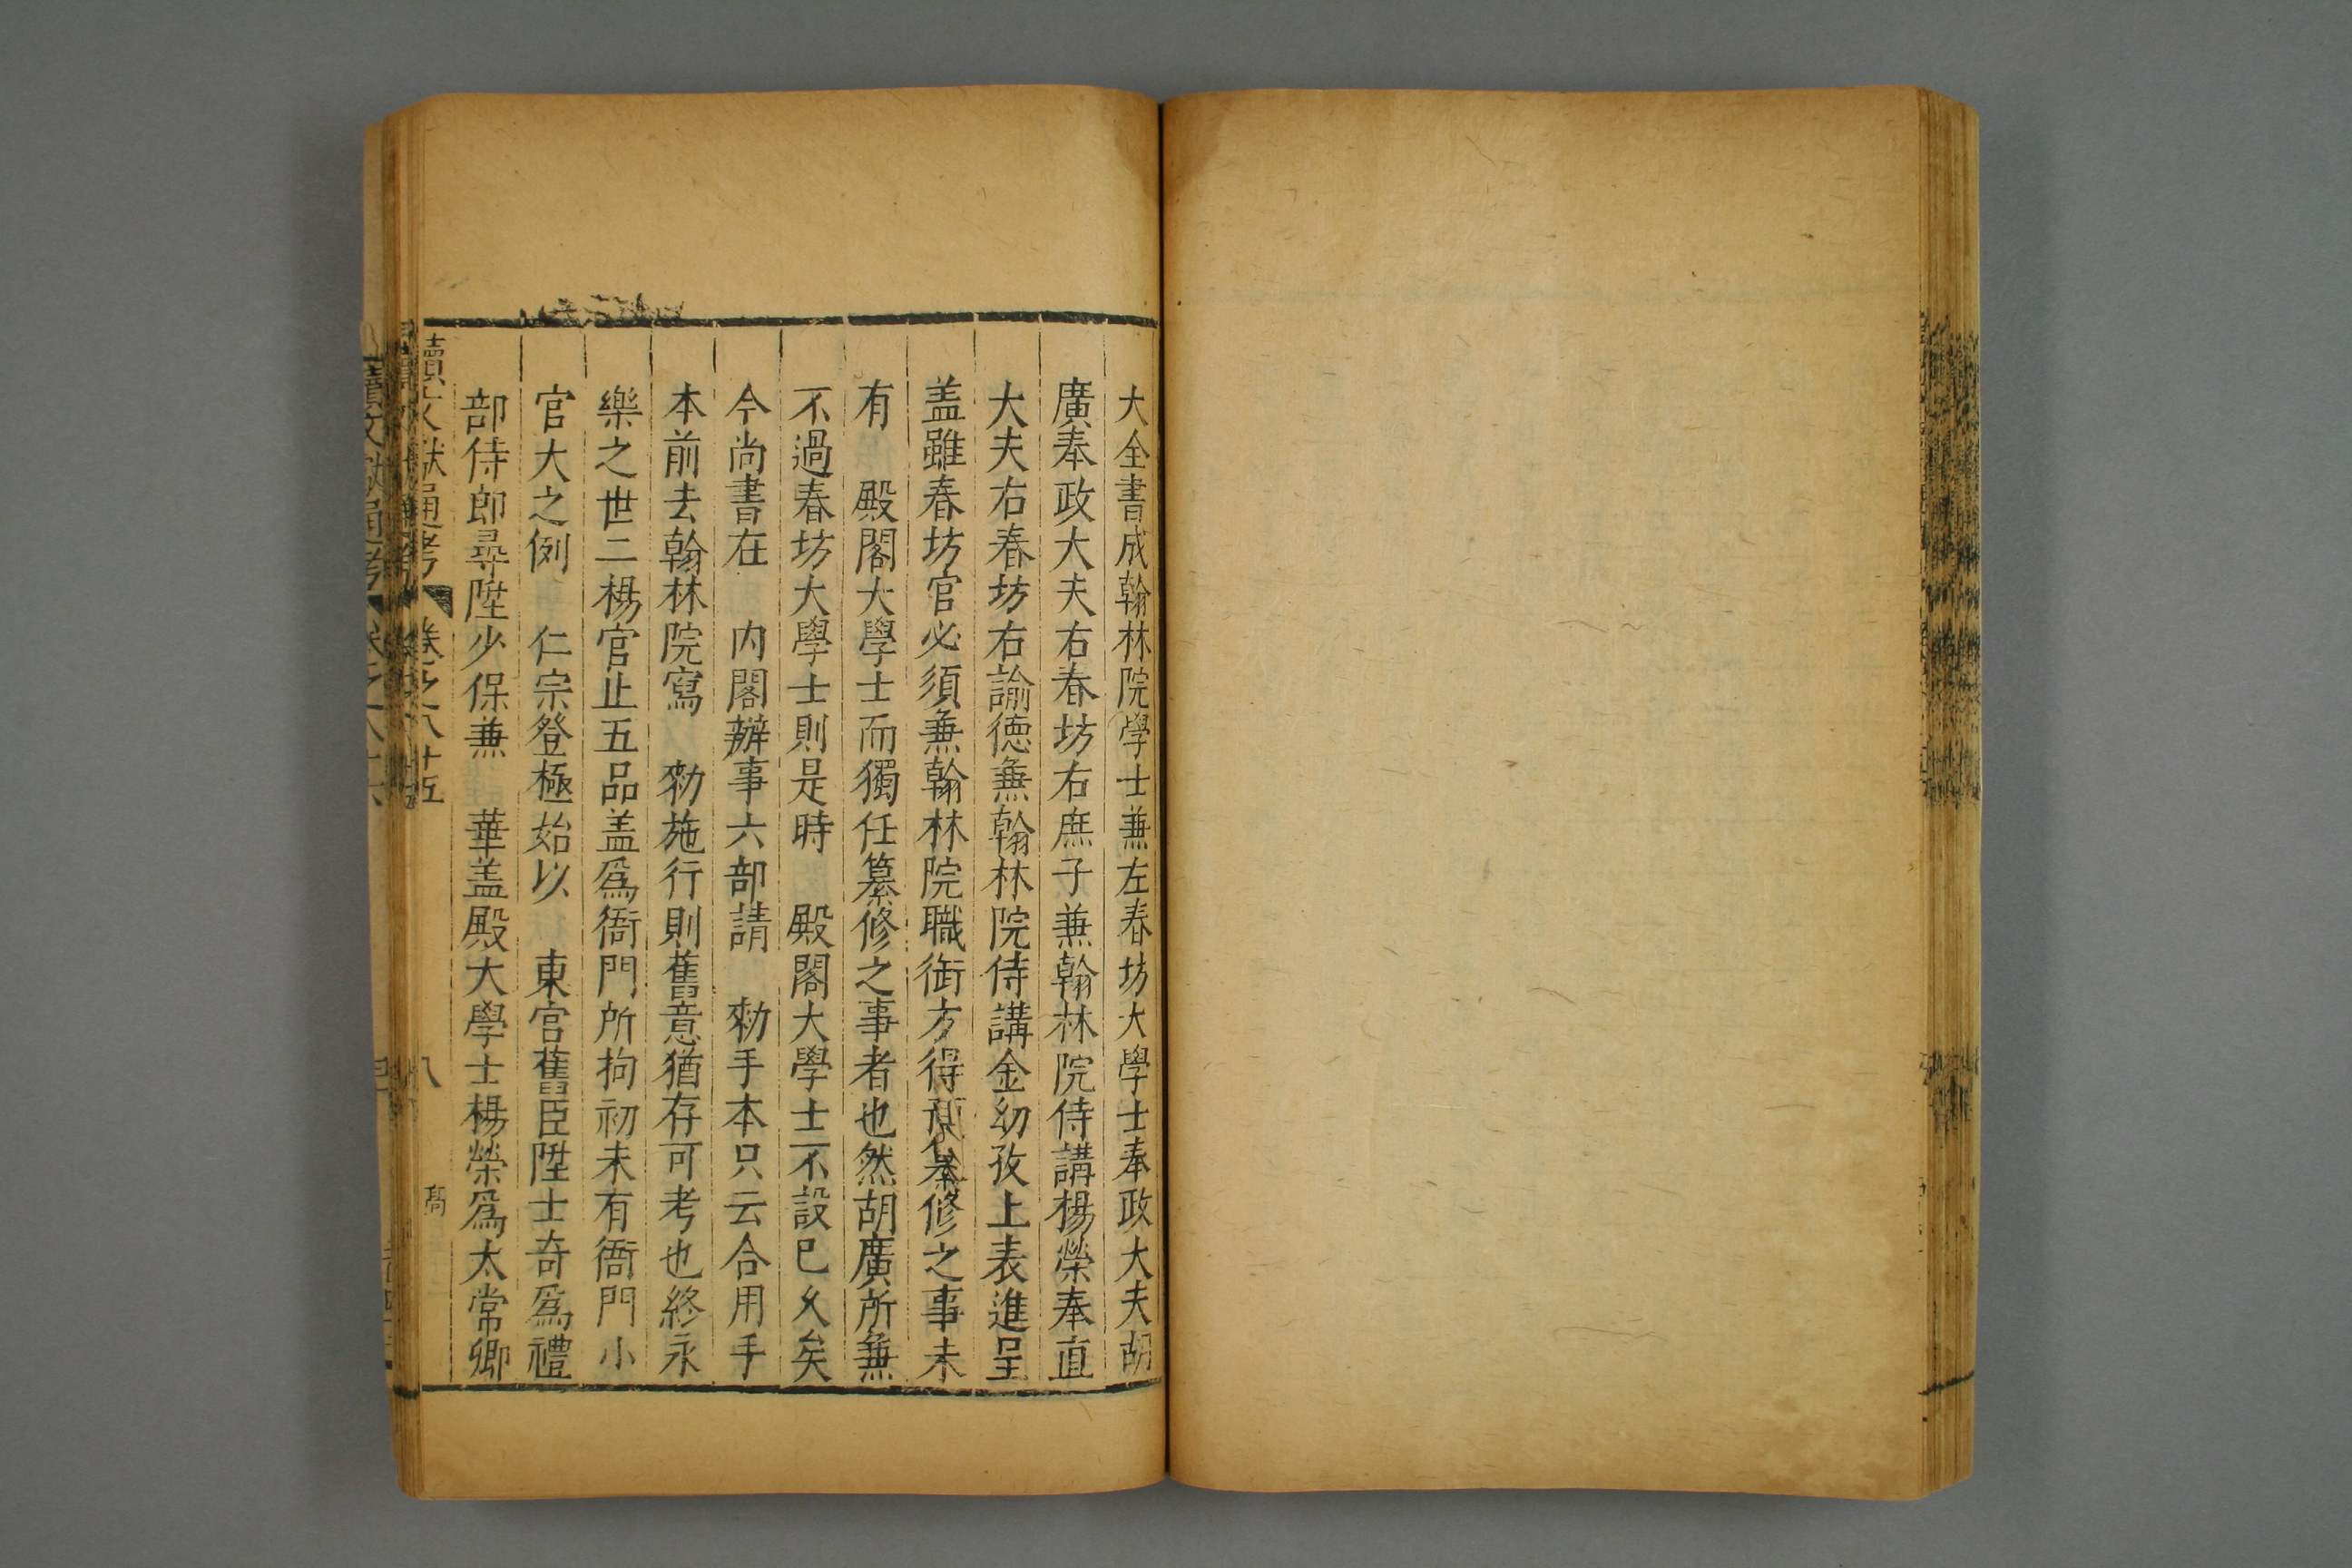 大全書成翰林院學士兼左春坊大學士奉政大夫胡
廣奉政大夫右春坊右庶子兼翰林院侍講楊榮奉直
大夫右春坊右諭德兼翰林院侍講金幼孜上表進呈
盖雖春坊官必須兼翰林院職銜方得預纂修之事未
有　殿閣大學士而獨任纂修之事者也然胡廣所兼
不過春坊大學士則是時　殿閣大學士不設已久矣
今尚書在　内閣辦事六部請　勑手本只云合用手
本前去翰林院寫　勑施行則舊意猶存可考也終永
樂之世二楊官止五品盖爲衙門所拘初未有衙門小
官大之例　仁宗登極始以　東宮舊臣陞士奇爲禮
部侍郎尋陞少保兼　華盖殿大學士楊榮爲太常卿
續文獻通考　卷之八十五　八　高
續文獻通考　卷之八十六